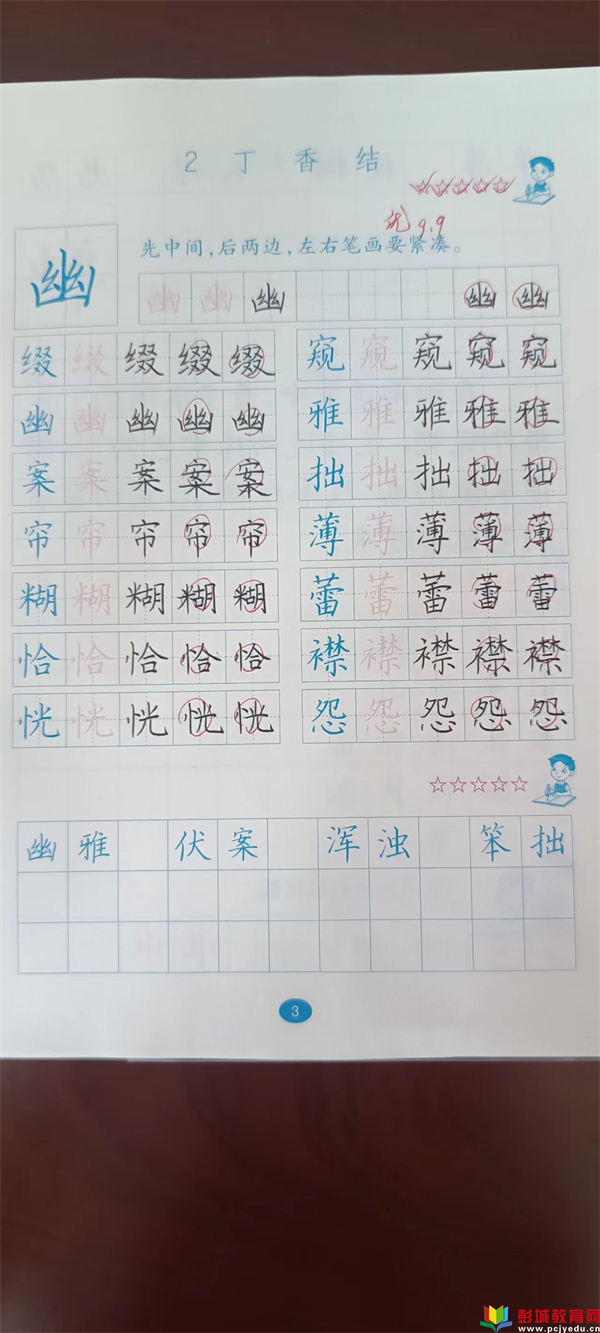 2 丁香结
优 9.9
幽 先中间，后两边，左右笔画要紧凑。
幽 幽 幽 幽 幽
缀 缀 缀 缀 缀 窥 窥 窥 窥 窥
幽 幽 幽 幽 幽 雅 雅 雅 雅 雅
案 案 案 案 案 拙 拙 拙 拙 拙
帘 帘 帘 帘 帘 薄 薄 薄 薄 薄
糊 糊 糊 糊 糊 蕾 蕾 蕾 蕾 蕾
恰 恰 恰 恰 恰 襟 襟 襟 襟 襟
恍 恍 恍 恍 恍 怨 怨 怨 怨 怨
幽雅 伏案 浑浊 笨拙
3
彭城教育网
www.pcjyedu.cn